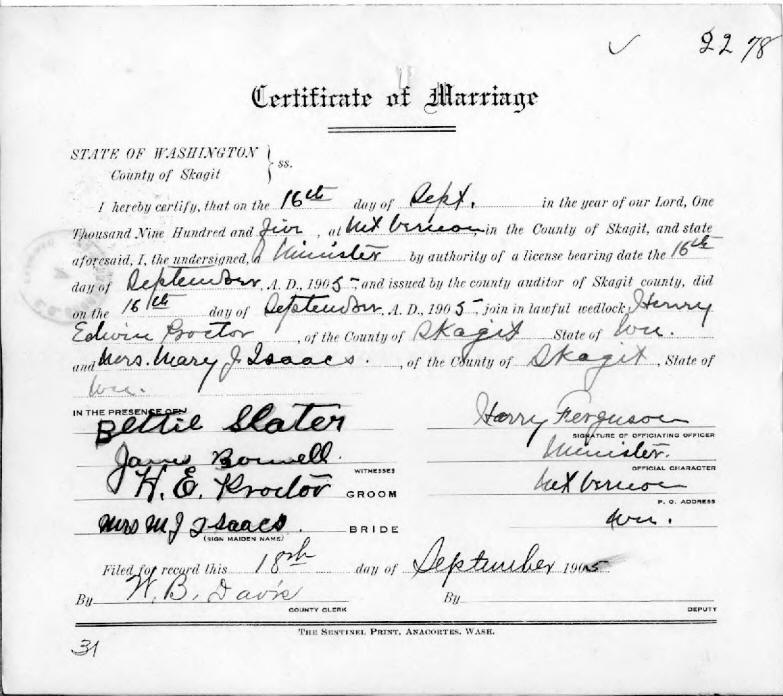 ✓ 2278
Certificate of Marriage
STATE OF WASHINGTON } ss.
County of Skagit
I hereby certify, that on the 16th day of Sept. in the year of our Lord, One
Thousand Nine Hundred and five, at Mt Vernon, in the County of Skagit, and state
aforesaid, I, the undersigned, a Minister by authority of a license bearing date the 16th
day of September, A. D., 1905, and issued by the county auditor of Skagit county, did
on the 16th day of September, A. D., 1905, join in lawful wedlock, Henry
Edwin Proctor, of the County of Skagit State of Wn.
and Mrs. Mary J Isaacs., of the County of Skagit, State of
Wn.
IN THE PRESENCE OF
Bettie Slater
James
WITNESSES
H. E. Proctor GROOM
Mrs M J Isaacs. BRIDE
(SIGN MAIDEN NAME)
Harry Ferguson
SIGNATURE OF OFFICIATING OFFICER
Minister.
OFFICIAL CHARACTER
Mt Vernon
P. O. ADDRESS
Wn.
Filed for record this 18th day of September 1905
By W. B. Davis By
COUNTY CLERK DEPUTY
THE SENTINEL PRINT, ANACORTES, WASH.
31